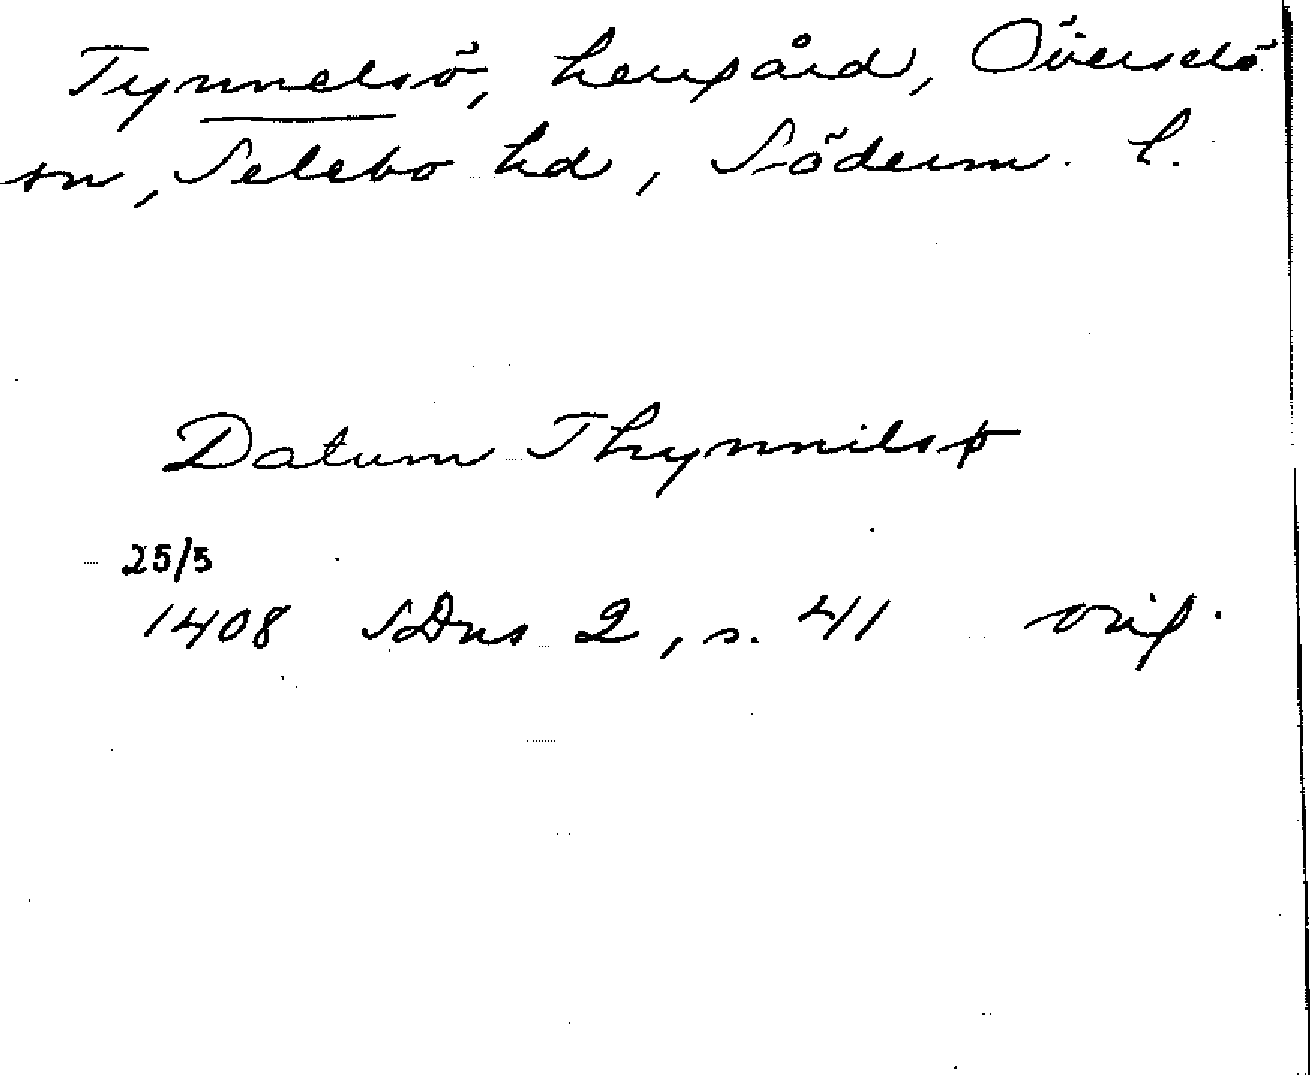 Tynnelsö, herrgård, Överselö
sn, Selebo hd, Söderm. l.
Datum Thynnilsø
25/5
1408 SDns 2, s. 41 orig.